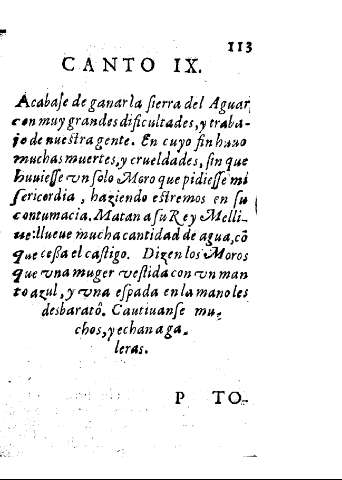 113
CANTO IX.
Acabaſe de ganar la ſierra del Aguar,
con muy grandes dificultades, y traba-
jo de nueſtra gente. En cuyo fin hauo
muchas muertes, y crueldades, ſin que
huuieſſe vn ſolo Moro que pidieſſe mi
ſericordia, haziendo eſtremos en ſu
contumacia. Matan a ſu Rey Melli-
ue: llueue mucha cantidad de agua, cõ
que ceſſa el caſtigo. Dizen los Moros
que vna muger veſtida con vn man
to azul, y vna eſpada en la mano les
desbaratô. Cautiuanſe mu-
chos, y echan a ga
leras.
P TO-